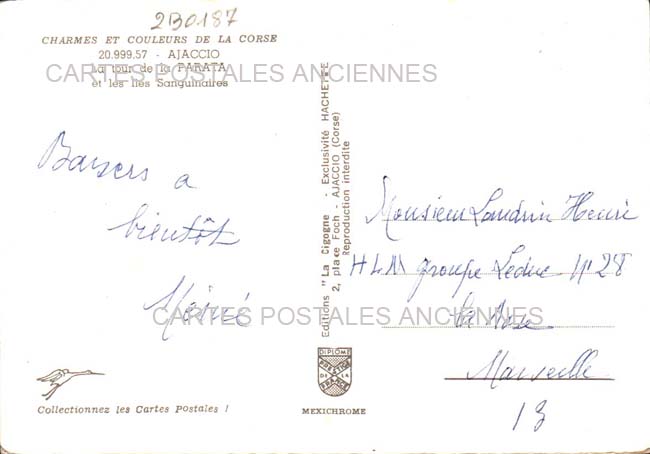 2B0187
CHARMES ET COULEURS DE LA CORSE
20.999.57 - AJACCIO
La tour de la PARATA
et les Iles Sanguinaires
CARTES POSTALES ANCIENNES
Baisers a
bientôt
Editions "La Cigogne" - Exclusivité HACHETTE
2, place Foch - AJACCIO (Corse)
Reproduction interdite
Monsieur Landrin Henri
HLM groupe Leduc N° 28
La Rose
Marseille
13
CARTES POSTALES ANCIENNES
DIPLOME
PRESTIGE
DE LA
FRANCE
Collectionnez les Cartes Postales !
MEXICHROME